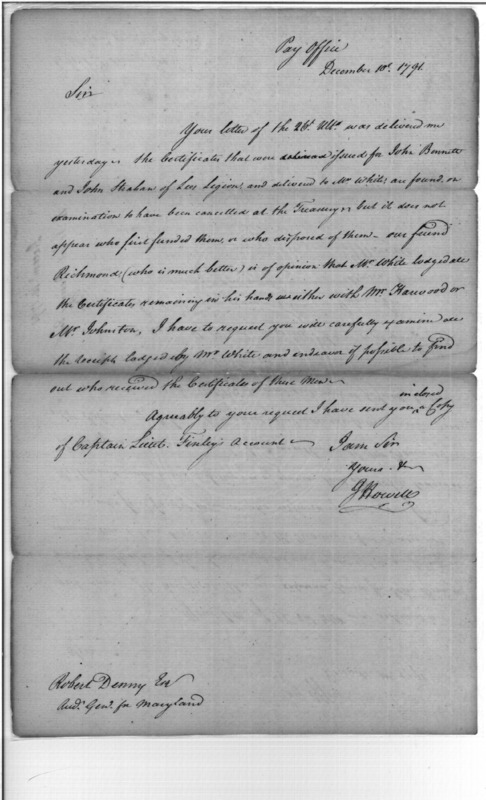 Pay Office
December 10th. 1791.
Sir
Your letter of the 26t. Ulto. was delivered me
yesterday. the Certificates that were issued for John Bennett
and John Strahan of Lees Legion, and delivered to Mr White, are found, on
examination to have been cancelled at the Treasury, but it does not
appear who first funded them, or who disposed of them - our friend
Richmond (who is much better) is of opinion that Mr White lodged all
the Certificates remaining in his hands either with Mr. Harwood or
Mr. Johnston, I have to request you will carefully examine all
the receipts lodged by Mr White and endeavor if possible to find
out who received the Certificates of these Men.
inclosed
Agreeably to your request I have sent you ^ a Copy
of Captain Lieut. Finley's Account
I am Sir
Yours &c
J Howell
Robert Denny Esr
Audr. Genl. for Maryland